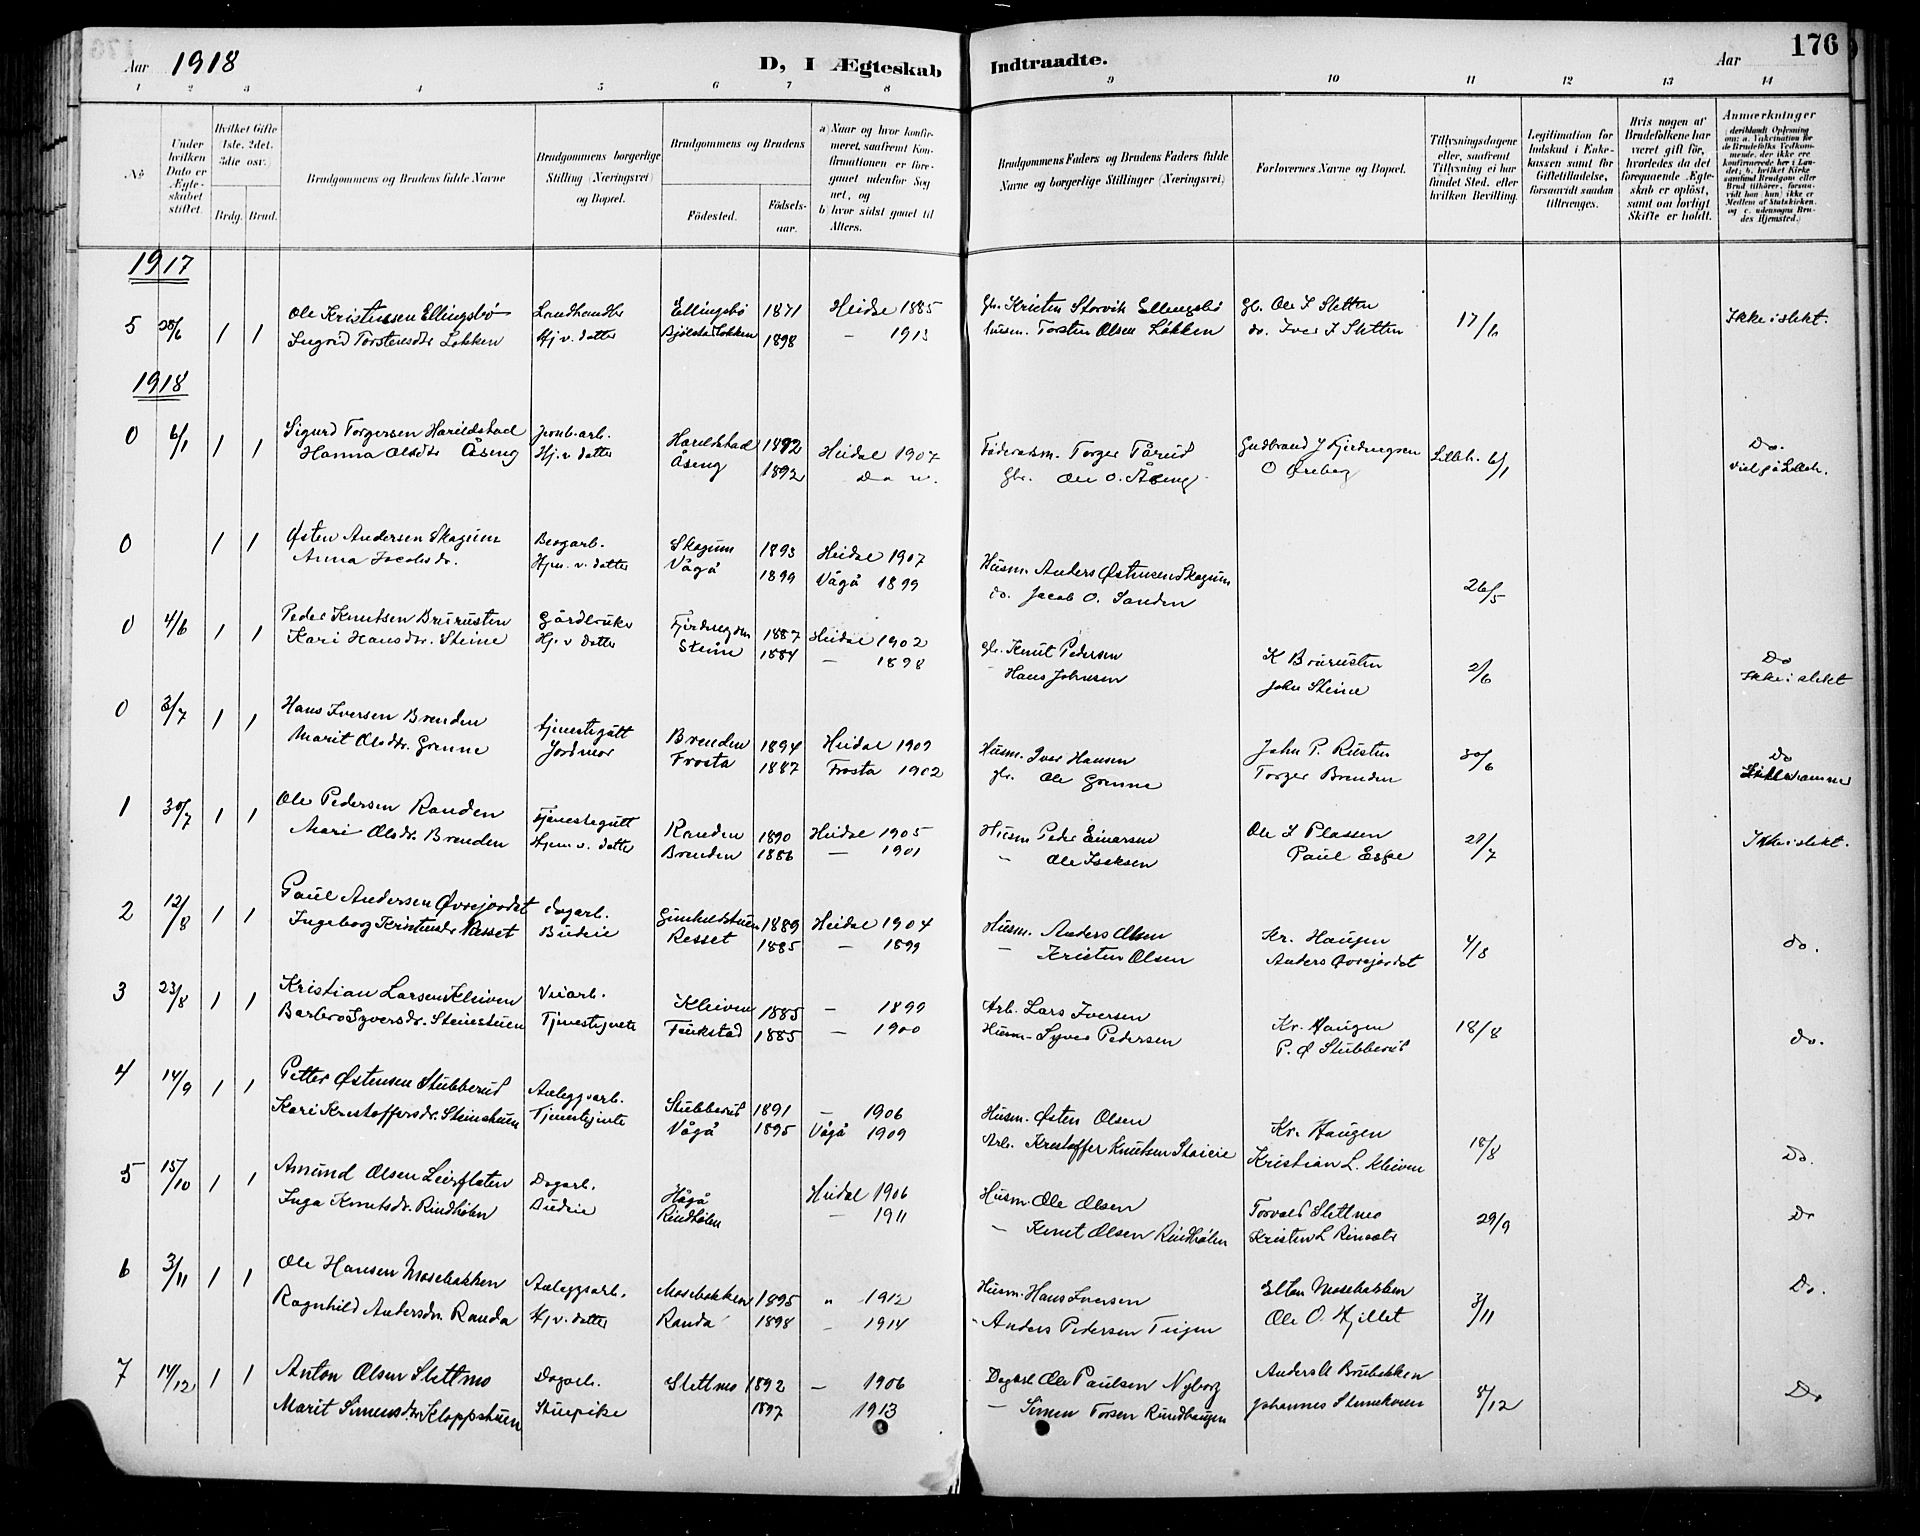 Aar 1918 D, I Ægteskab Indtraadte. Aar 176
1 2 3 4 5 6 7 8 9 10 11 12 13 14
No
Under hvilken Dato er Ægteskabet stiftet.
Hvilket Gifte 1ste, 2det, 3die osv.:
Brdg. Brud.
Brudgommens og Brudens fulde Navne
Brudgommens borgerlige Stilling (Næringsvei) og Bopæl.
Brudgommens og Brudens
Fødested. Fødselsaar.
a) Naar og hvor konfirmeret, saafremt Konfirmationen er foregaaet udenfor Sognet, og
b) hvor sidst gaaet til Alters.
Brudgommens Faders og Brudens Faders fulde Navne og borgerlige Stillinger (Næringsvei)
Forlovernes Navne og Bopæl.
Tillysningsdagene eller, saafremt Tillysning ei har fundet Sted, efter hvilken Bevilling.
Legitimation for Indskud i Enkekassen samt for Giftetilladelse, forsaavidt saadan tiltrænges.
Hvis nogen af Brudefolkene har været gift før, hvorledes da det foregaaende Ægteskab er opløst, samt om lovligt Skifte er holdt.
Anmærkninger
(deriblandt Oplysning om: a. Vakcination for de Brudefolks Vedkommende, der ikke ere konfirmerede her i Landet; b. hvilket Kirkesamfund Brudgom eller Brud tilhører, forsaavidt han (hun) ikke er Medlem af Statskirken, og c. udensogns Brudes Hjemsted.)
1917
5 28/6 1 1 Ole Kristensen Ellingsbö Landhandler Ellingsbö 1871 Heidal 1885 Gbr. Kristen Storvik Ellingsbö Gb. Ole I Sletten 17/6 Ikke i slekt.
Ingrid Torstensdtr Lökken Hj. v. datter Bjölstad Lökken 1898 — 1913 husm. Torsten Olsen Lökken do. Iver I Sletten
1918
0 6/1 1 1 Sigurd Torgersen Harildstad Jernb.arb. Harildstad 1892 Heidal 1907 Föderådsm. Torger Tårud Gudbrand J Fjerdingren Lilleh. 6/1 Do.
Hanna Olsdtr Åseng Hj. v datter Åseng 1892 Do Gbr. Ole O. Åseng O Öreberg Viet på Lilleh.
0 1 1 Østen Andersen Skagum Skagum 1893 Heidal 1907 Husm. Anders Østensen Skagum 26/5
Anna Jacobsdr. Hjem. v. datter Vågå 1899 Vågå 1899 do. Jacob O. Sanden
0 4/6 1 1 Peder Knutsen Brurusten Gårdbruker 1887 Heidal 1902 Gb. Knut Pedersen K Brurusten 2/6 Do
Kari Hansdr. Steine Hj. v datter Steine 1884 — 1898 — Hans Johnsen John Steine Ikke i slekt
0 3/7 1 1 Hans Iversen Brenden tjenestegutt Brenden 1894 Heidal 1909 Husm. Iver Hansen John P. Rusten 30/6 Do
Marit Olsdtr. Grenne Jordmor Frosta 1887 Frosta 1902 gbr. Ole Grenne Torger Brenden
1 30/7 1 1 Ole Pedersen Randen Tjenestegutt Randen 1890 Heidal 1905 Husm Peder Einarsen Ole I Plassen 28/7 Ikke i slekt.
Mari Olsdr. Brenden Hjem v. datter Brenden 1886 — 1901 — Ole Iseksen Paul Espe
2 12/8 1 1 Paul Andersen Øvrejordet Dagarb. 1889 Heidal 1904 Husm. Anders Olsen Kr. Haugen 4/8 do.
Ingeborg Kristensdr Resset Budeie Resset 1885 — 1899 — Kristen Olsen Anders Øvrejordet
3 23/8 1 1 Kristian Larsen Kleiven Veiarb. Kleiven 1885 — 1899 Arb. Lars Iversen Kr. Haugen 18/8 do.
Barbro Syversdr. Steinstuen Tjenestjente 1885 — 1900 Husm. Syver Pedersen P. Ø Stubberud
4 14/9 1 1 Petter Østensen Stubberud Anleggsarb. Stubberud 1891 — 1906 Husm. Østen Olsen Kr. Haugen 18/8 Do.
Kari Kristoffersdr. Steinstuen Tjenestjente Vågå 1895 Vågå 1909 Arb. Kristoffer Knutsen Kristian L. Kleiven
5 15/10 1 1 Amund Olsen Leirflaten Dagarb. Hågå Heidal 1906 Husm. Ole Olsen Torvald Slettmo 29/9 Do
Inga Knutsdr. Rindhölen Budeie Rindhölen — 1911 — Knut Olsen Rindhölen Kristen L
6 3/11 1 1 Ole Hansen Mosebakken Anleggsarb. Mosebakken 1895 „ 1912 Husm. Hans Iversen Mosebakken 3/11 Do.
Ragnhild Andersdr. Randa Hj. v. datter Randa 1898 „ 1914 - Anders Pedersen Teigen Ole O. Hjillet
7 14/12 1 1 Anton Olsen Slettmo Dagarb. Slettmo 1892 — 1906 Dagarb Ole Paulsen Nyborg Anders Brubakken 8/12 Do
Marit Simensdtr Kloppstuen Stuepike 1897 1913 — Simen Torsen Rindhaugen Johannes